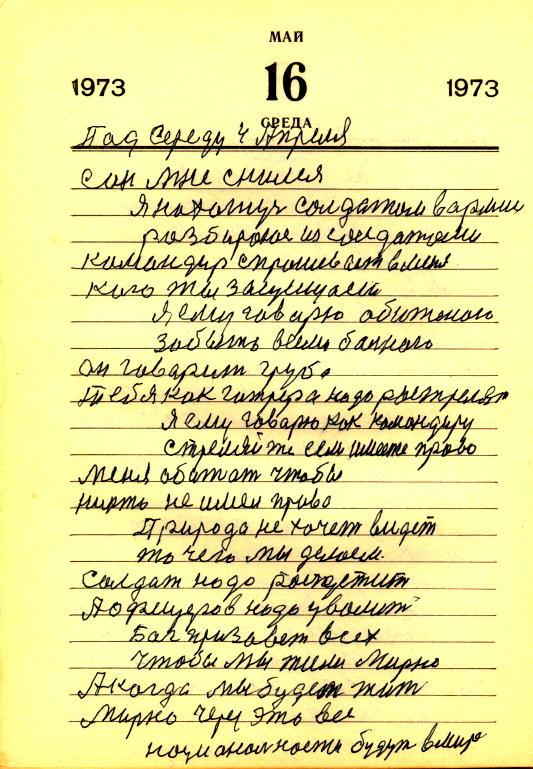 МАЙ
1973 16 1973
СРЕДА
Под Середу 4 Апреля
сон мне снился
я нахожус солдатом в армии
розбироюс из солдатами
командир спрашевает в меня
кого ты защущает
я ему говарю обиженого
Забыть всеми бапного
он говарит грубо
Тебя как гитлера надо растрелят
я ему говарю как командиру
стреляйте есле имеете право
меня обатат чтобы
нихто не имел право
Природа не хочет видет
то чего мы делоем.
Солдат надо роспустит
А офицеров надо уволит
Бог призавет всех
чтобы мы жили Мирно
А когда мы будем жит
Мирно через это все
нацианалности будут в мире